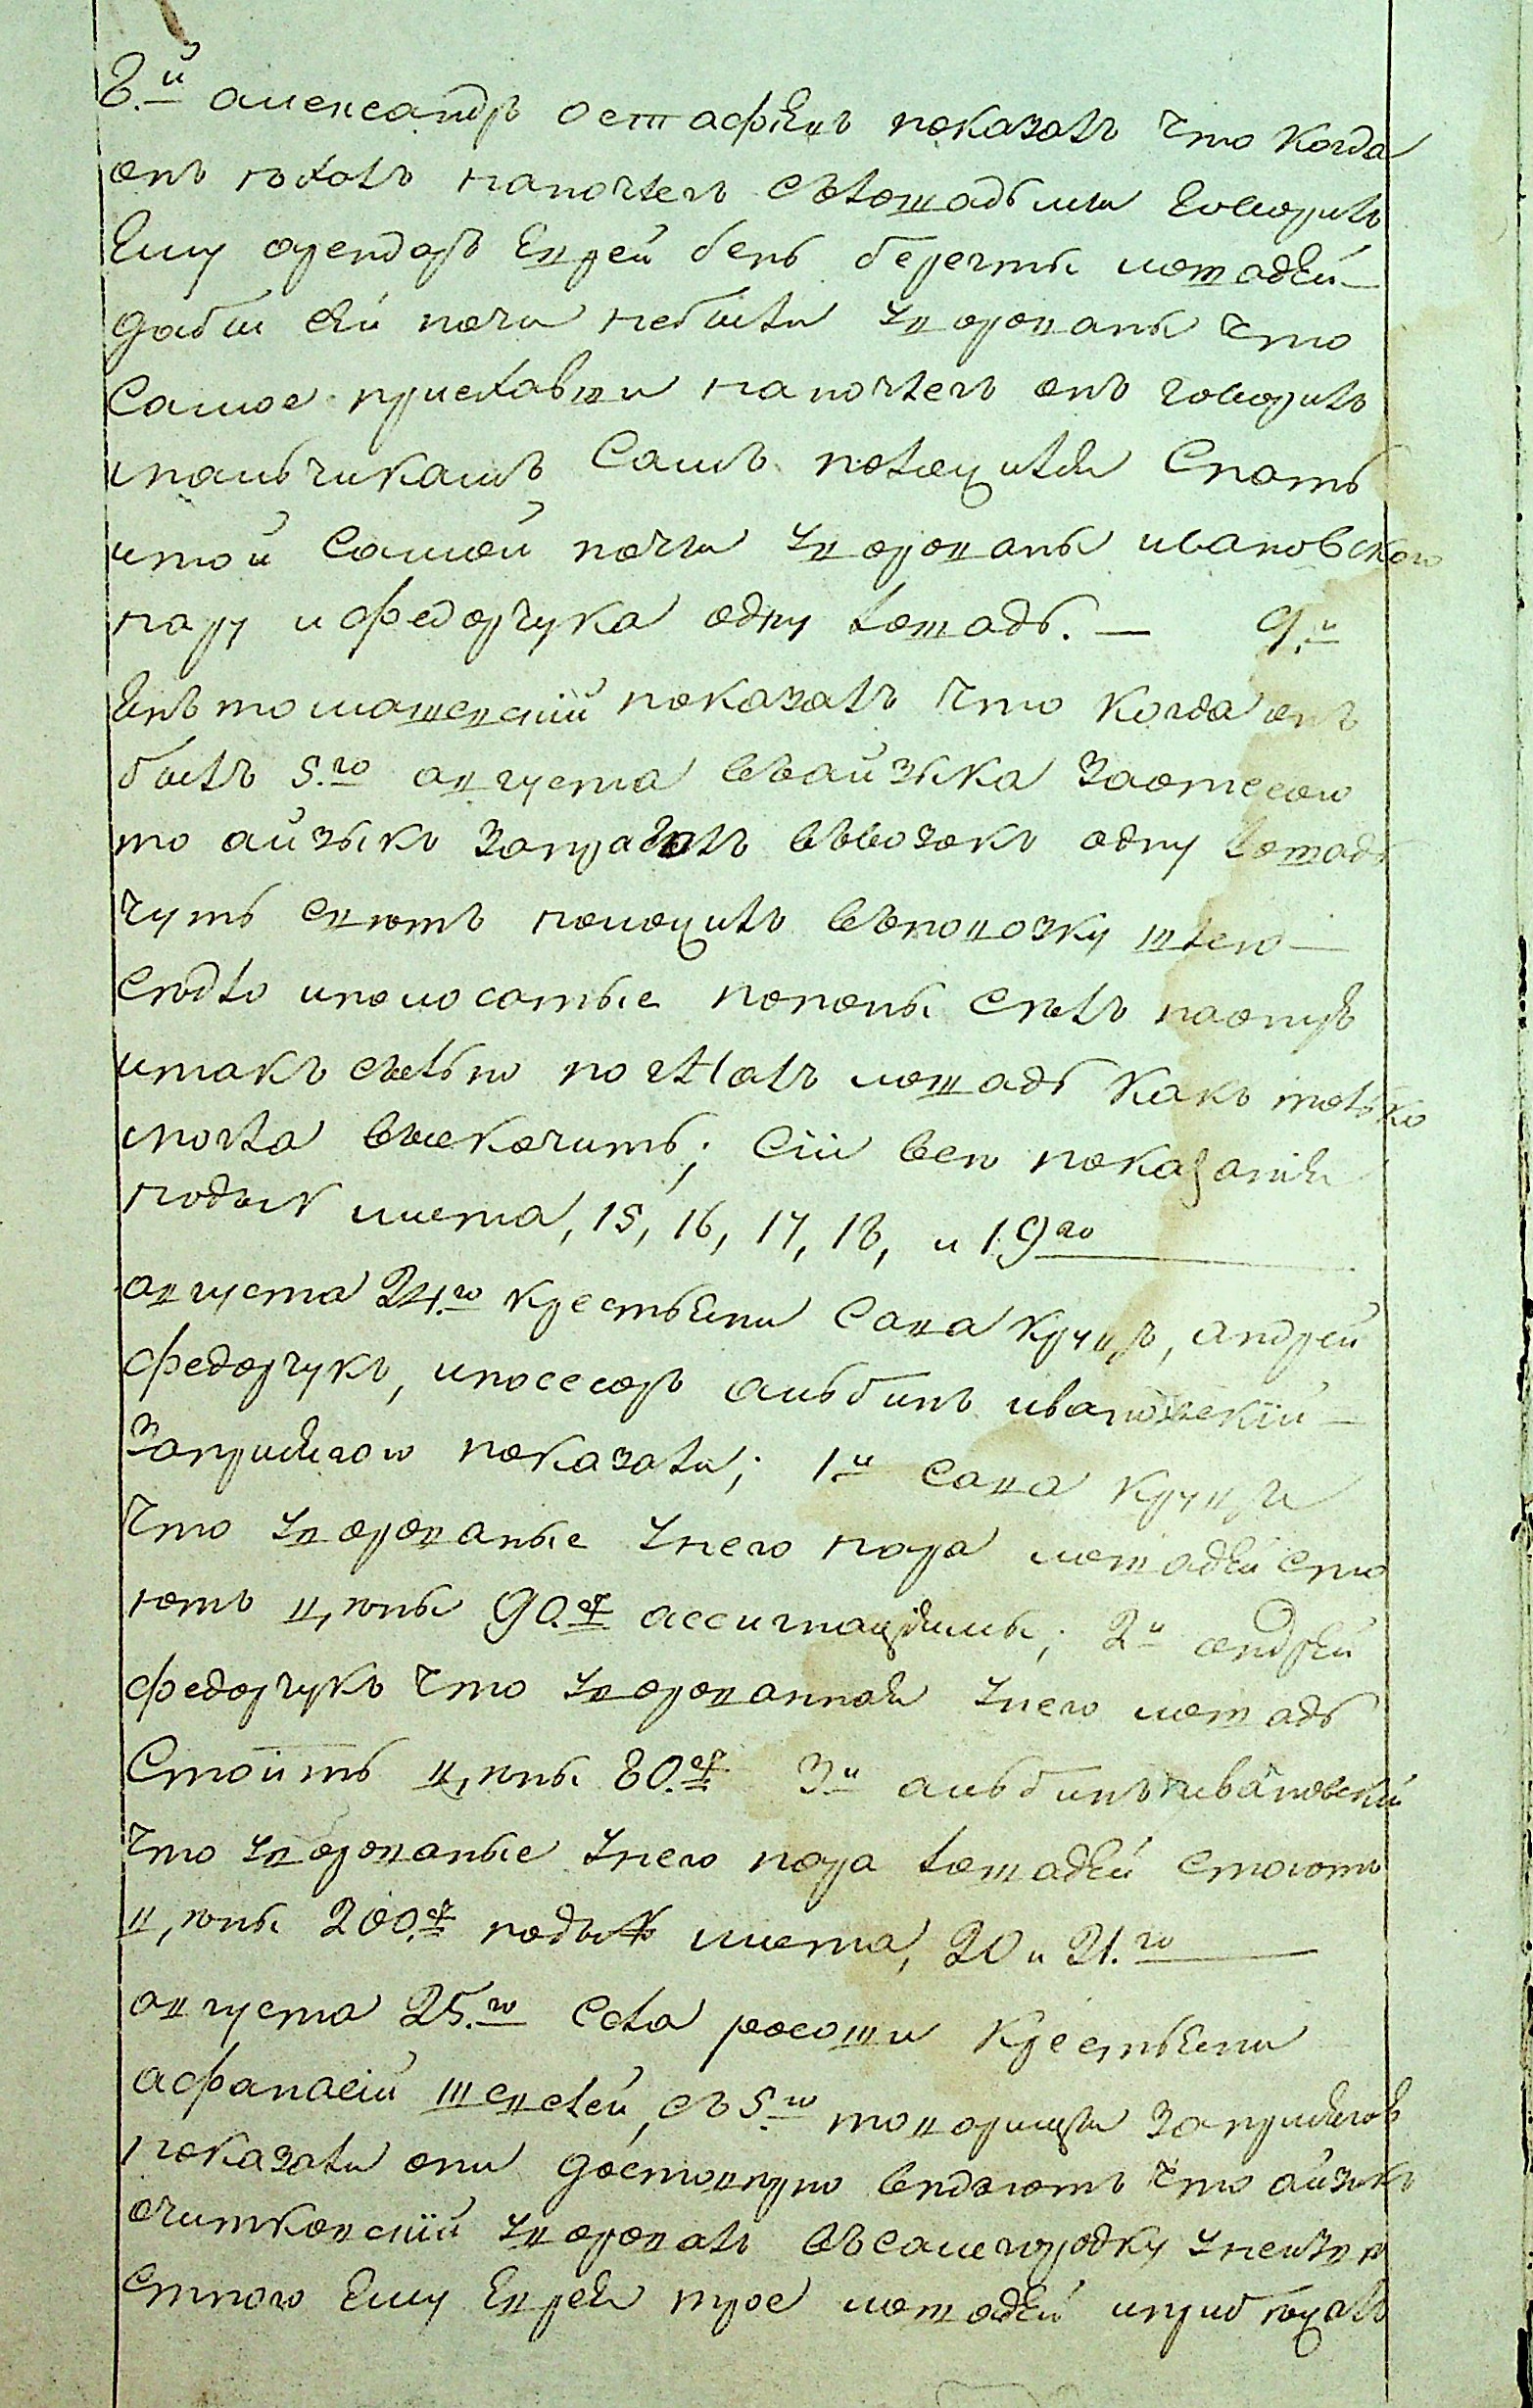 8.й александръ остафѣевъ показалъ что когда
онъ ѣхалъ наночлегъ слошадьми говорилъ
ему арендаръ еврей бенъ беречты лошадей
дабы сей ночи небыли уворованы что
самое приехавши наночлегъ онъ говорилъ
мальчикамъ самъ положился спать
итой самой ночи уворованы ивановского
пару и федорчука одну лошадь. — 9.й
янъ томашевскій показалъ что когда онъ
былъ 5.го августа въайзыка заотесою
то айзыкъ запрагалъ въвозокъ одну лошадь
чуть свѣтъ положилъ въповозку
седло иполосатые попоны снялъ
итакъ сильно погналъ лошадь какъ только
могла выскочить; сіи всѣ показанія
подъ № листа, 15, 16, 17, 18, и 19го
августа 24.го крестьяни сава круцъ, андрей
федорчукъ, ипосесоръ альбинъ ивановскій
заприсягою показали; 1й сава
что уворованые унего пара лошадей сто
ютъ цѣны 90.р ассигнацыямы; 2й андрей
федорчукъ что уворованная унего лошадь
стоитъ цѣны 80.р 3й альбинъ ивановскій
что уворованые унего пара лошадей стоютъ
цѣны 200.р подъ № листа, 20 и 21.го
августа 25.го села росоши крестьяни
афанасій шевчей, съ 5.го товарищы заприсягою
показали они достоверно ведаютъ что айзыкъ
очитковскій уворовалъ въсамгородку унеизве
стного ему еврея трое лошадей